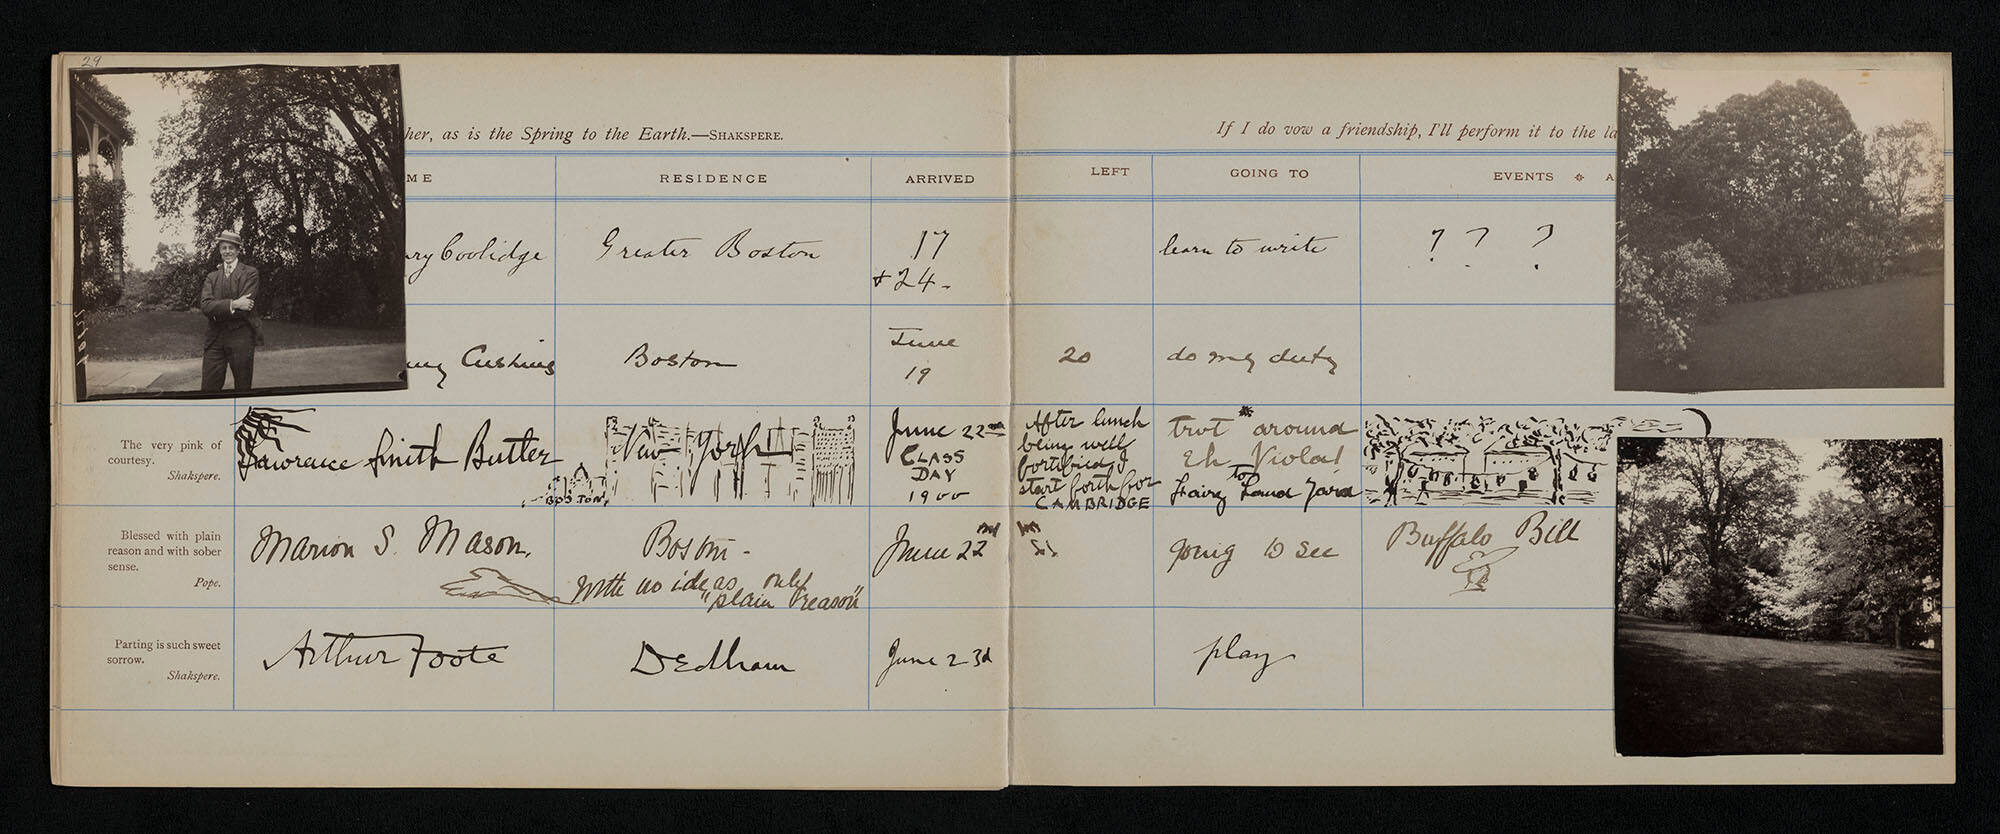 29
her, as is the Spring to the Earth.—SHAKSPERE.
If I do vow a friendship, I'll perform it to the la
ME RESIDENCE ARRIVED LEFT GOING TO EVENTS A
ry Coolidge Greater Boston 17 learn to write ? ? ?
+ 24-
Cushing Boston June 19 20 do my duty
The very pink of
courtesy.
Shakspere.
Lawrence Smith Butler
New York
BOSTON
June 22nd
CLASS
DAY
1900
After lunch
being well
fortified I
start forth for
CAMBRIDGE
trot around
Eh Viola!
to
Fairy Land Yard
Blessed with plain
reason and with sober
sense.
Pope.
Marion S. Mason. Boston- June 22nd going to see Buffalo Bill
With no ideas only
"plain reason"
Parting is such sweet
sorrow.
Shakspere.
Arthur Foote Dedham June 23d play